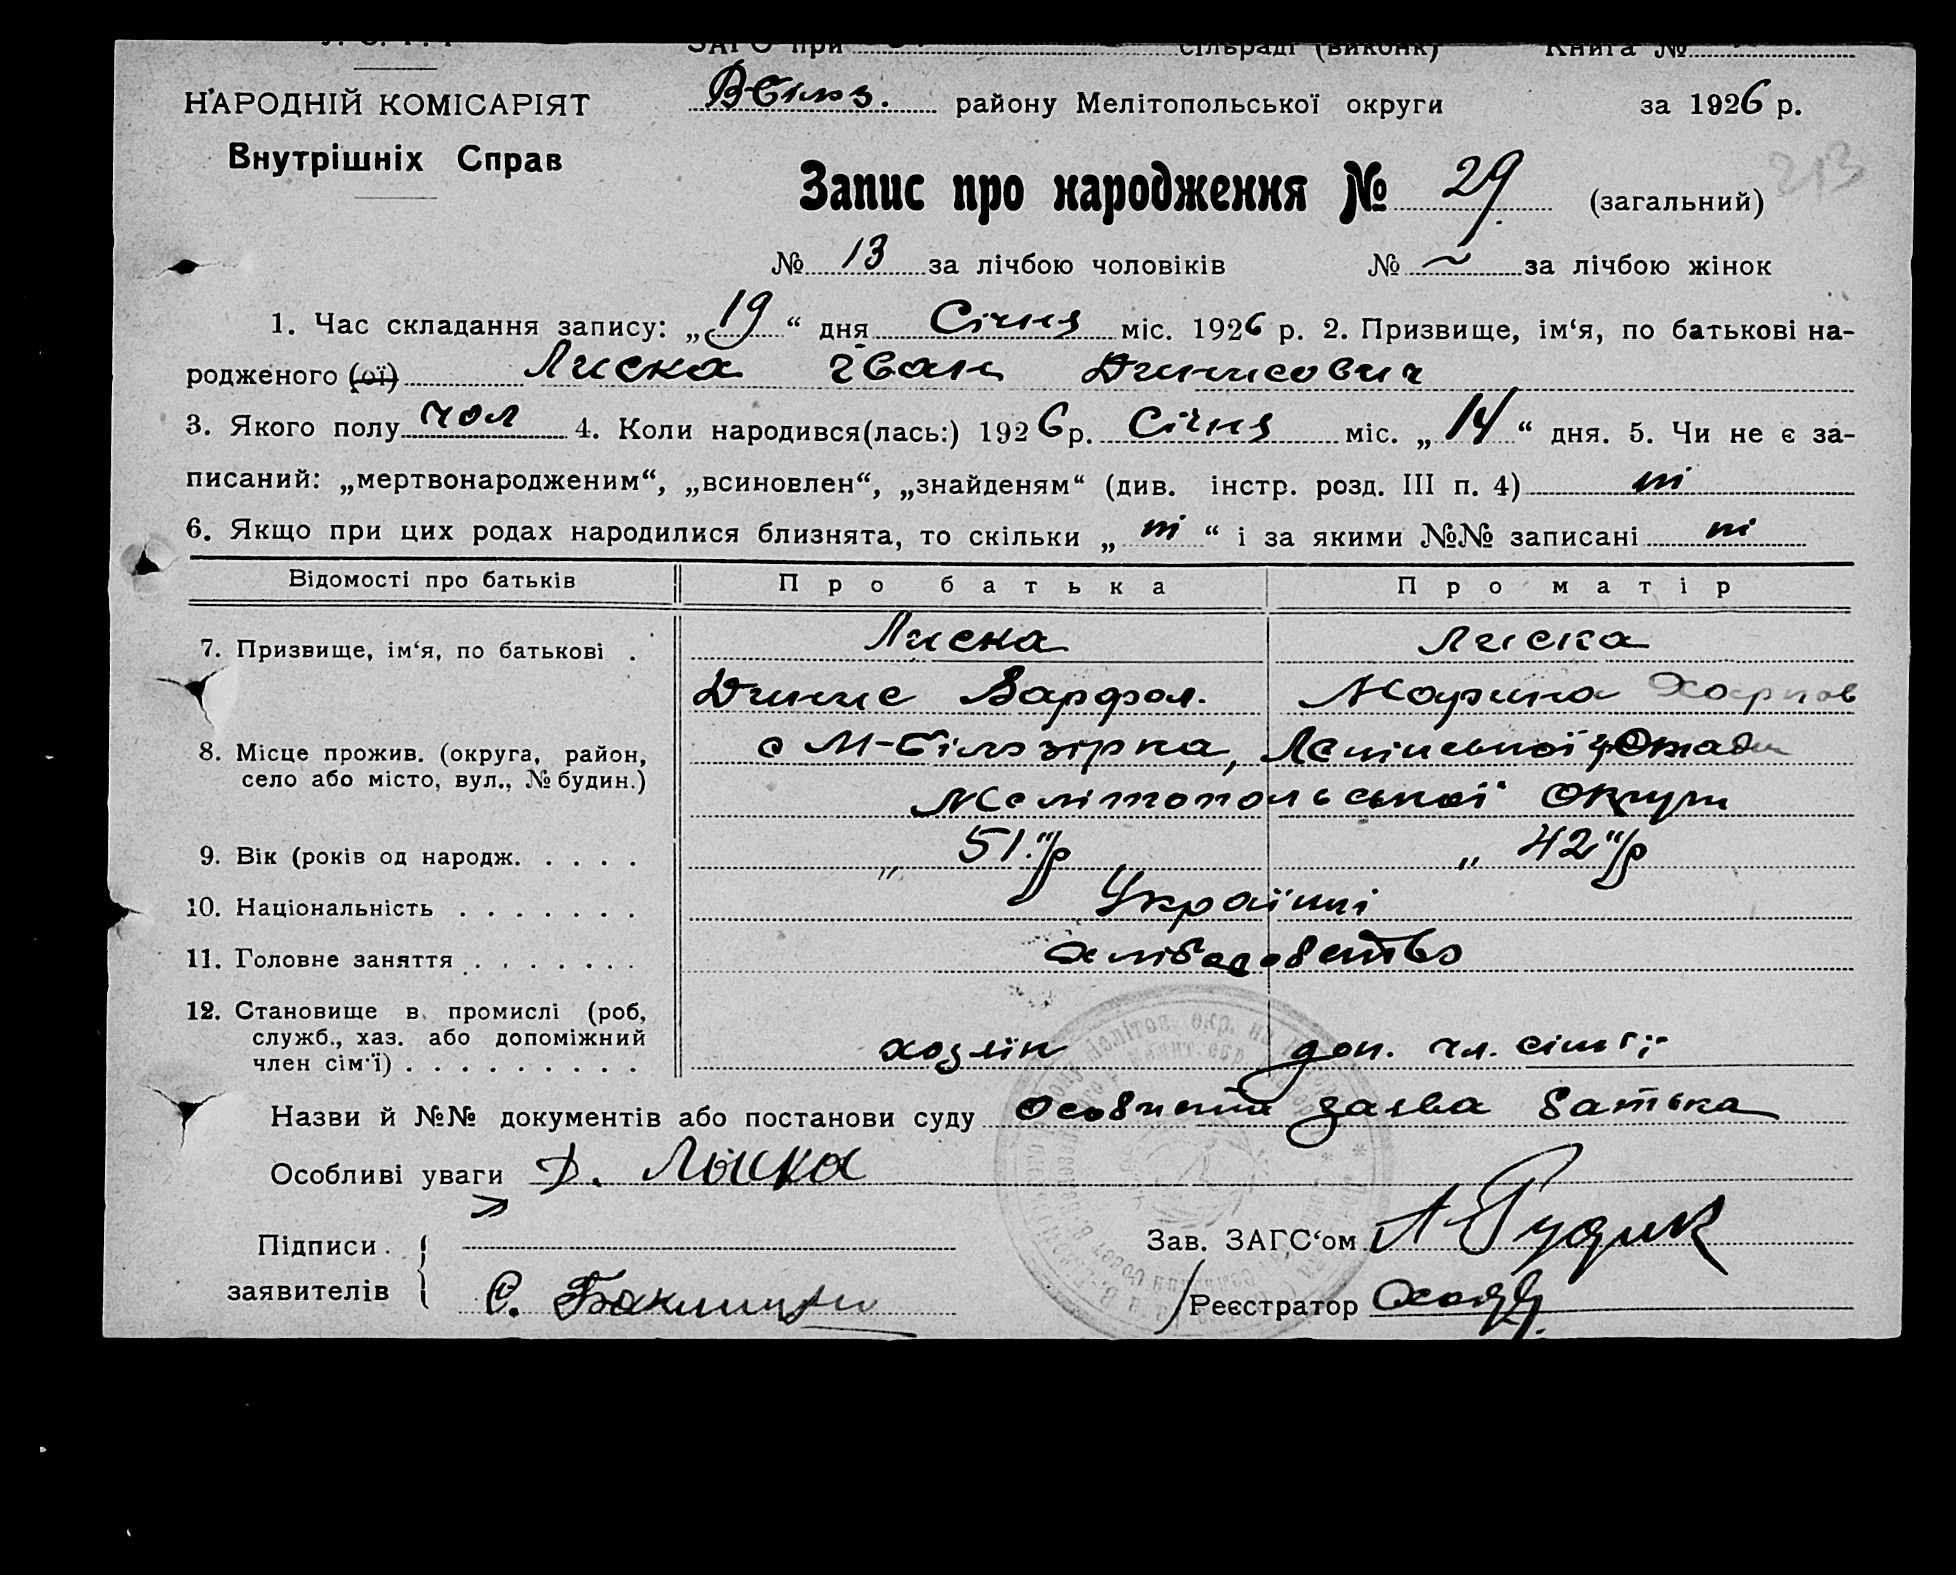 ЗАГС при сільраді (виконк) Книга №
НАРОДНІЙ КОМІСАРІЯТ В-Білоз. району Мелітопольської округи за 1926 р.
Внутрішніх Справ
Запис про народження № 29 (загальний) 213
№ 13 за лічбою чоловіків № ~ за лічбою жінок
1. Час складання запису: „19“ дня Січня міс. 1926 р. 2. Призвище, ім‘я, по батькові на-
родженого (ої) Лиска Іван Динисович
3. Якого полу чол 4. Коли народився(лась:) 1926 р. Січня міс. „14“ дня. 5. Чи не є за-
писаний: „мертвонародженим“, „всиновлен“, „знайденям“ (див. інстр. розд. III п. 4) ні
6. Якщо при цих родах народилися близнята, то скільки „ні“ і за якими №№ записані ні
Відомості про батьків Про батька Про матір
7. Призвище, ім‘я, по батькові . Лиска Лиска
Динис Варфол. Марина Харпов
8. Місце прожив. (округа, район, с М-Білозірка, Ленінської Громади
село або місто, вул., № будин.)
Мелітопольської Округи
9. Вік (років од народж. . . . . „ 51 р „ 42 р
10. Національність . . . . . . . Українці
11. Головне заняття . . . . . . . хліборобство
12. Становище в промислі (роб,
служб., хаз. або допоміжний хозяїн доп. чл. сім'ї
член сім‘ї) . . . . . . . . .
Назви й №№ документів або постанови суду Особиста заява батька
Особливі уваги Д. Лыска
Підписи Зав. ЗАГС‘ом А Рудик
заявителів С. Реєстратор